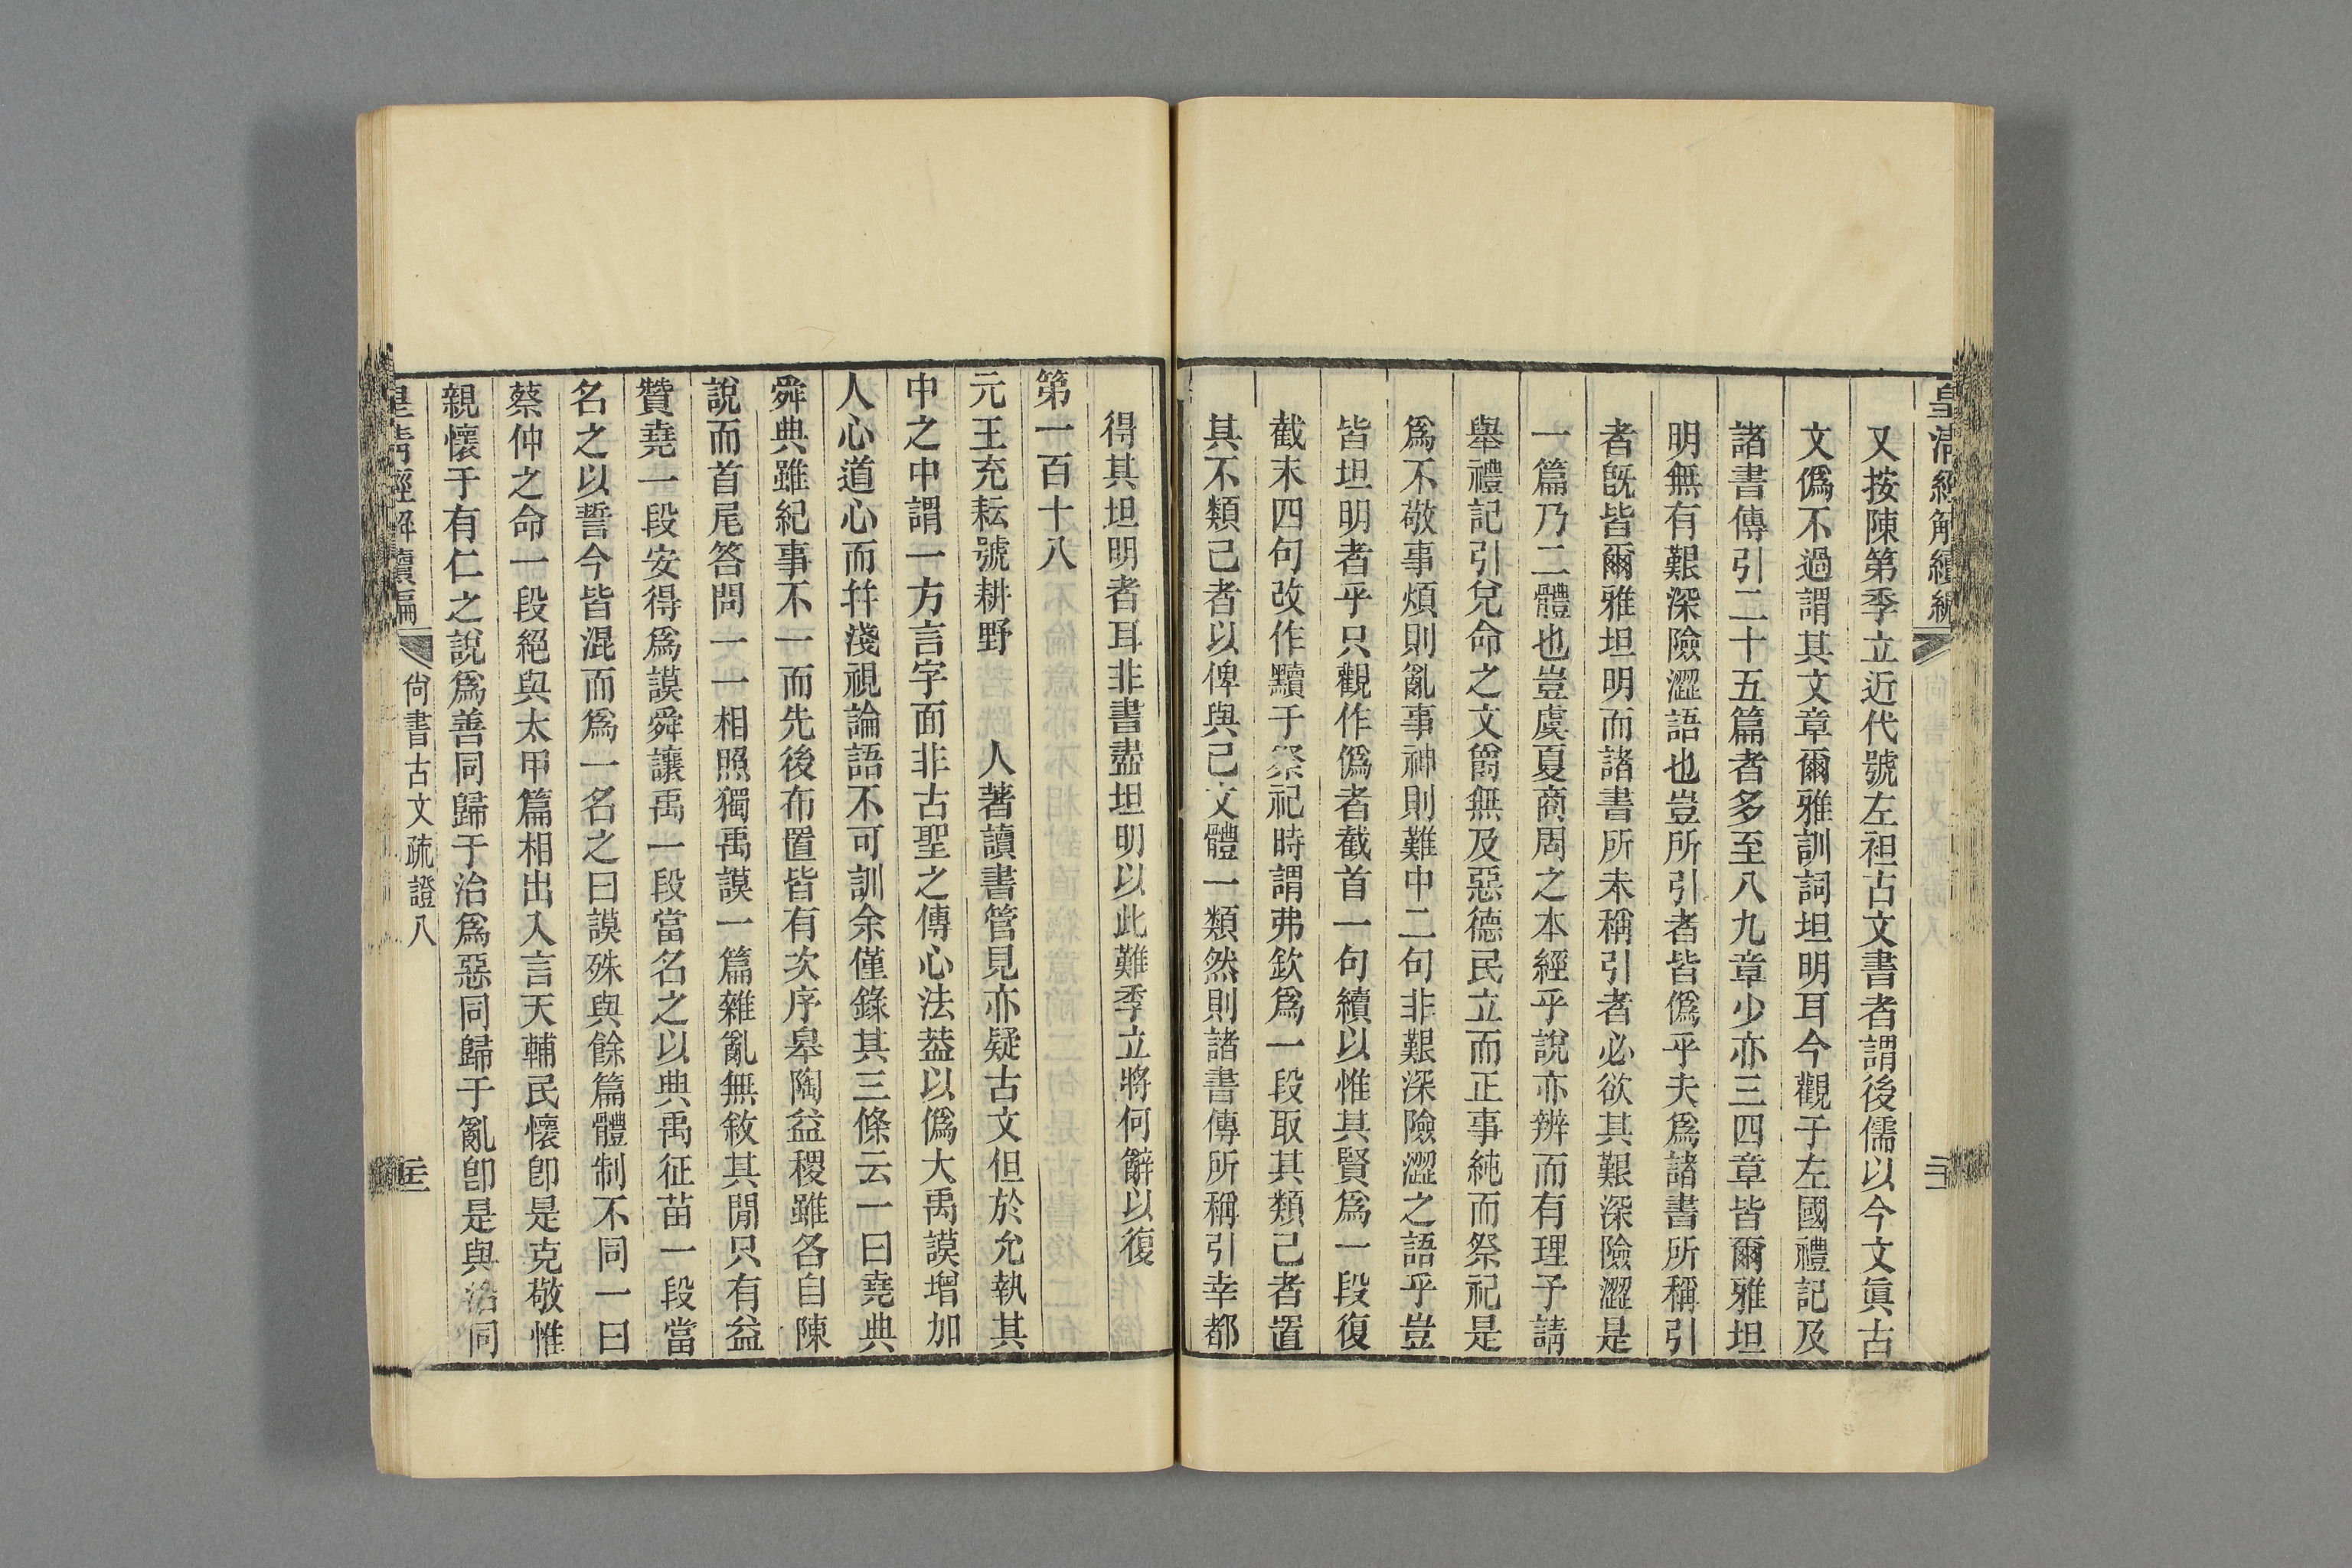 皇清經解續編
又按陳第季立近代號左袒古文書者謂後儒以今文眞古
文僞不過謂其文章爾雅訓詞坦明耳今觀于左國禮記及
諸書傳引二十五篇者多至八九章少亦三四章皆爾雅坦
明無有艱深險澀語也豈所引者皆僞乎夫爲諸書所稱引
者旣皆爾雅坦明而諸書所未稱引者必欲其艱深險澀是
一篇乃二體也豈虞夏商周之本經乎說亦辨而有理予請
舉禮記引兌命之文爵無及惡德民立而正事純而祭祀是
爲不敬事煩則亂事神則難中二句非艱深險澀之語乎豈
皆坦明者乎只觀作僞者截首一句續以惟其賢爲一段復
截末四句改作黷于祭祀時謂弗欽爲一段取其類己者置
其不類己者以俾與己文體一類然則諸書傳所稱引幸都
得其坦明者耳非書盡坦明以此難季立將何辭以復
第一百十八
元王充耘號耕野　人著讀書管見亦疑古文但於允執其
中之中謂一方言字面非古聖之傳心法葢以僞大禹謨增加
人心道心而幷淺視論語不可訓余僅錄其三條云一曰堯典
舜典雖紀事不一而先後布置皆有次序皋陶益稷雖各自陳
說而首尾答問一一相照獨禹謨一篇雜亂無敘其閒只有益
贊堯一段安得爲謨舜讓禹一段當名之以典禹征苗一段當
名之以誓今皆混而爲一名之曰謨殊與餘篇體制不同一曰
蔡仲之命一段絕與太甲篇相出入言天輔民懷卽是克敬惟
親懷于有仁之說爲善同歸于治爲惡同歸于亂卽是與治同
皇清經解續編
尙書古文疏證八